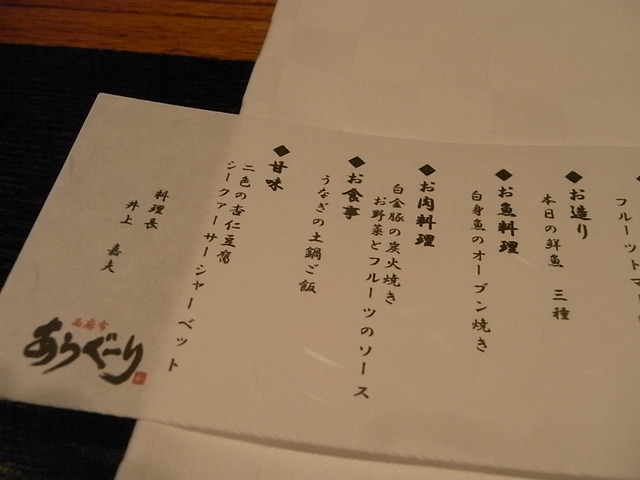 フルーツトマト
◆お造り
本日の鮮魚 三種
◆お魚料理
白身魚のオーブン焼き
◆お肉料理
白金豚の炭火焼き
お野菜とフルーツのソース
◆お食事
うなぎの土鍋ご飯
◆甘味
二色の杏仁豆腐
シークァーサーシャーベット
料理長
井上 嘉夫
西麻布
あらぐーり